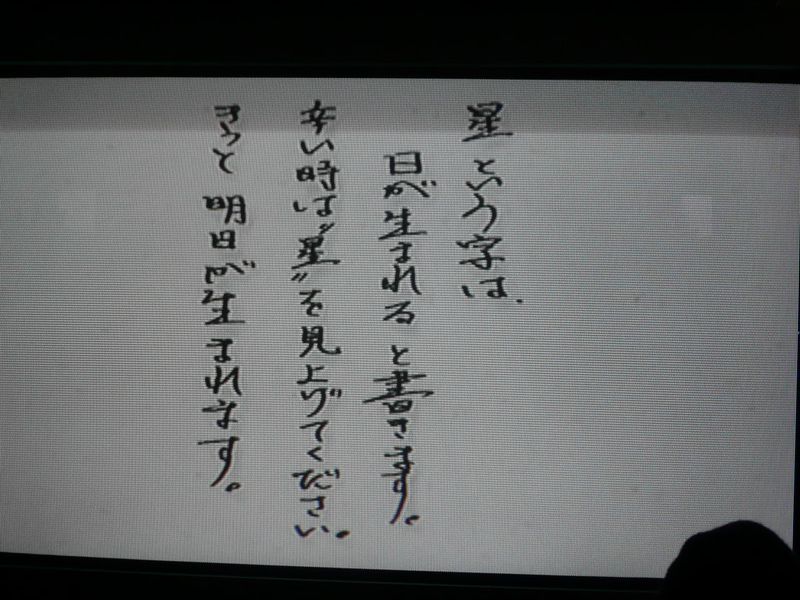 星という字は、
日が生まれると書きます。
辛い時は"星"を見上げてください。
きっと明日が生まれます。